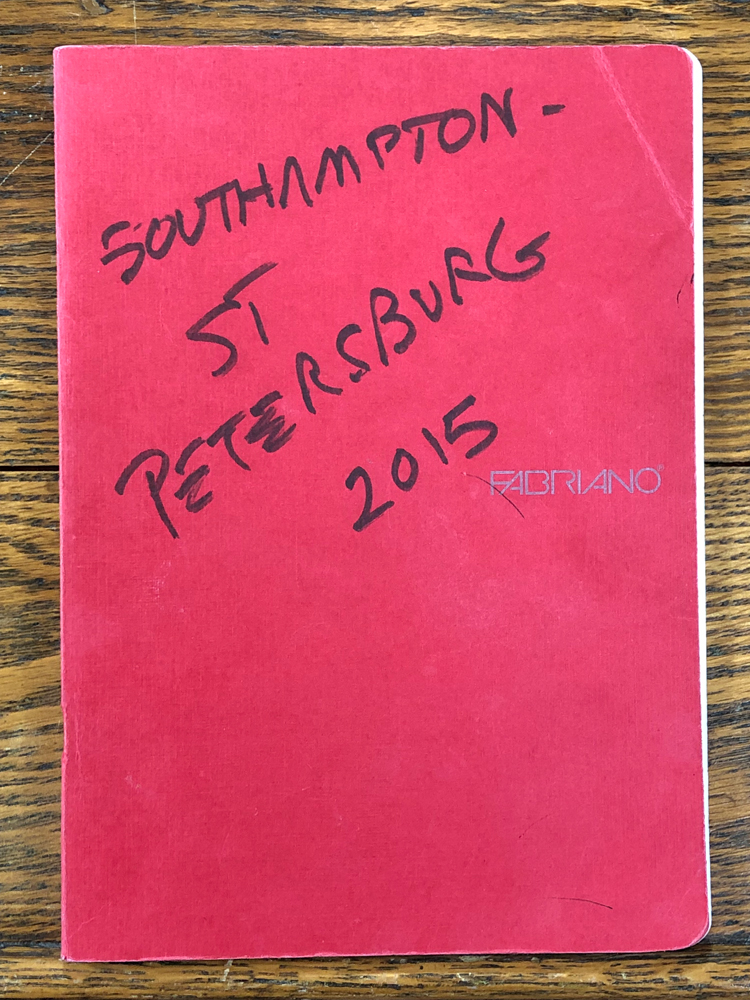 SOUTHAMPTON -
ST
PETERSBURG
2015
FABRIANO®